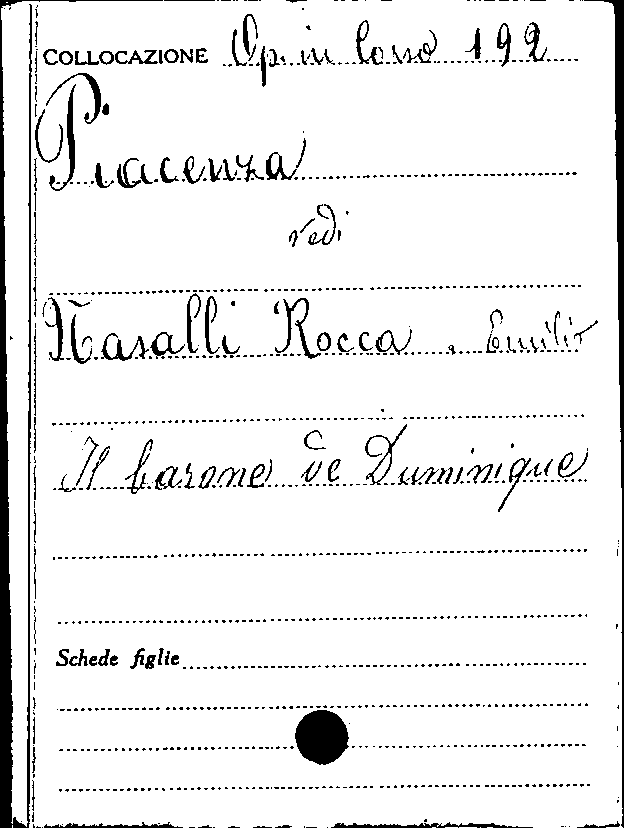 COLLOCAZIONE Op. in Corso 192
Piacenza
vedi
Nasalli Rocca. Emilio
Il barone de Duminique
Schede figlie